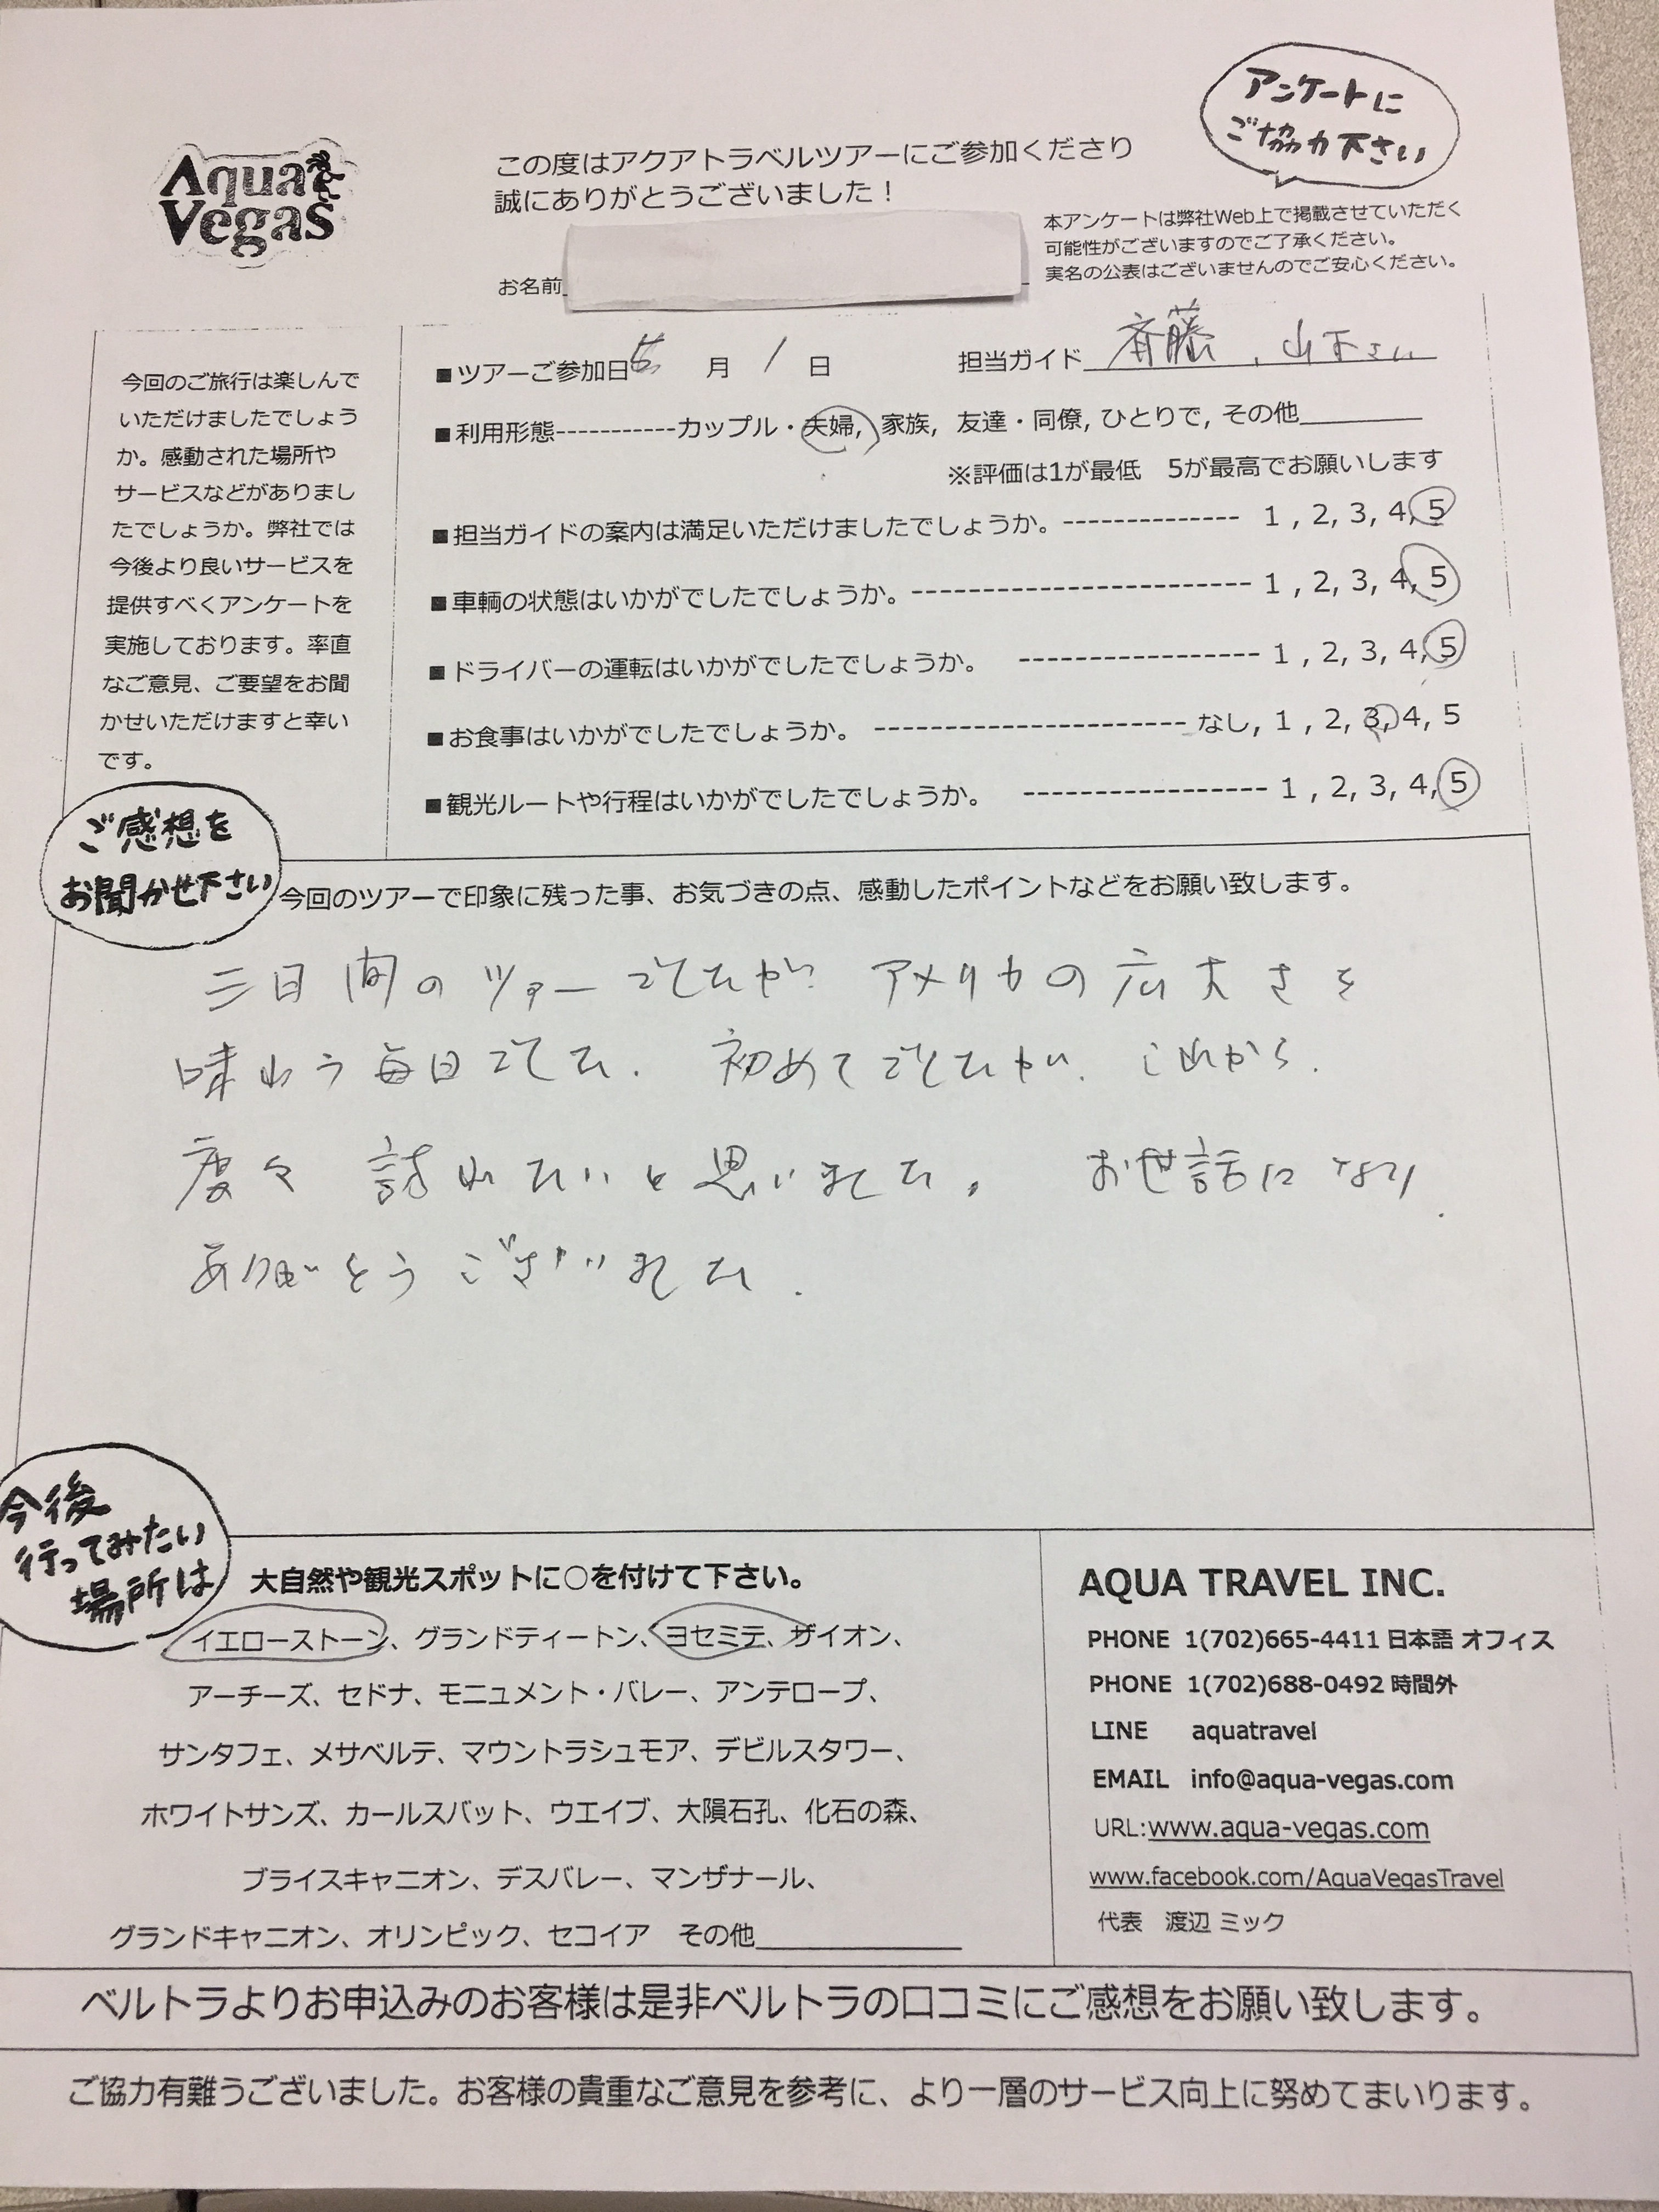 アンケートに
ご協力下さい
Aqua
Vegas
この度はアクアトラベルツアーにご参加くださり
誠にありがとうございました！
本アンケートは弊社Web上で掲載させていただく
可能性がございますのでご了承ください。
実名の公表はございませんのでご安心ください。
お名前
今回のご旅行は楽しんで
いただけましたでしょう
か。感動された場所や
サービスなどがありまし
たでしょうか。弊社では
今後より良いサービスを
提供すべくアンケートを
実施しております。率直
なご意見、ご要望をお聞
かせいただけますと幸い
です。
■ツアーご参加日 5 月 1 日 担当ガイド 斉藤、山下さん
■利用形態-----------カップル・夫婦, 家族, 友達・同僚, ひとりで, その他
※評価は1が最低 5が最高でお願いします
■担当ガイドの案内は満足いただけましたでしょうか。-------------- 1 , 2, 3, 4, 5
■車輌の状態はいかがでしたでしょうか。--------------------------- 1 , 2, 3, 4, 5
■ドライバーの運転はいかがでしたでしょうか。 ------------------ 1 , 2, 3, 4, 5
■お食事はいかがでしたでしょうか。 ----------------------- なし, 1 , 2, 3, 4, 5
■観光ルートや行程はいかがでしたでしょうか。 ------------------ 1 , 2, 3, 4, 5
ご感想を
お聞かせ下さい
今回のツアーで印象に残った事、お気づきの点、感動したポイントなどをお願い致します。
三日間のツアーでしたが アメリカの広大さを
味わう毎日でした. 初めてでしたが、これから.
度々 訪れたいと思いました。 お世話になり.
ありがとうございました.
今後
行ってみたい
場所は
大自然や観光スポットに○を付けて下さい。
イエローストーン、グランドティートン、ヨセミテ、ザイオン、
アーチーズ、セドナ、モニュメント・バレー、アンテロープ、
サンタフェ、メサベルテ、マウントラシュモア、デビルスタワー、
ホワイトサンズ、カールスバット、ウエイブ、大隕石孔、化石の森、
ブライスキャニオン、デスバレー、マンザナール、
グランドキャニオン、オリンピック、セコイア その他
AQUA TRAVEL INC.
PHONE 1(702)665-4411 日本語 オフィス
PHONE 1(702)688-0492 時間外
LINE aquatravel
EMAIL info@aqua-vegas.com
URL:www.aqua-vegas.com
www.facebook.com/AquaVegasTravel
代表 渡辺 ミック
ベルトラよりお申込みのお客様は是非ベルトラの口コミにご感想をお願い致します。
ご協力有難うございました。お客様の貴重なご意見を参考に、より一層のサービス向上に努めてまいります。